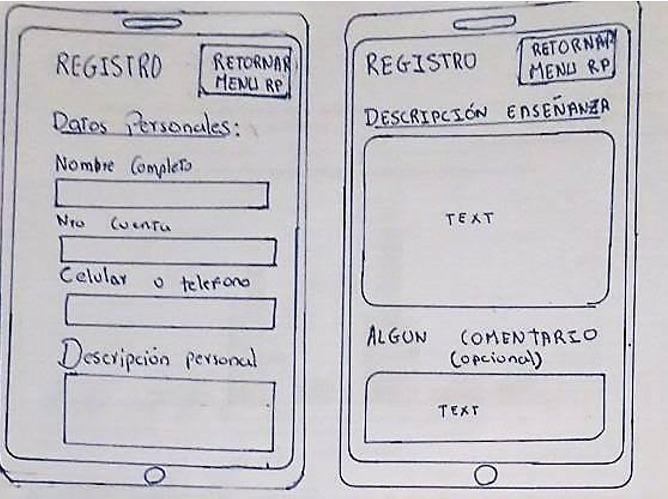 REGISTRO
RETORNAR
MENU RP
Datos Personales:
Nombre Completo
Nro Cuenta
Celular o telefono
Descripción personal
REGISTRO
RETORNAR
MENU RP
DESCRIPCIÓN ENSEÑANZA
TEXT
ALGUN COMENTARIO
(opcional)
TEXT